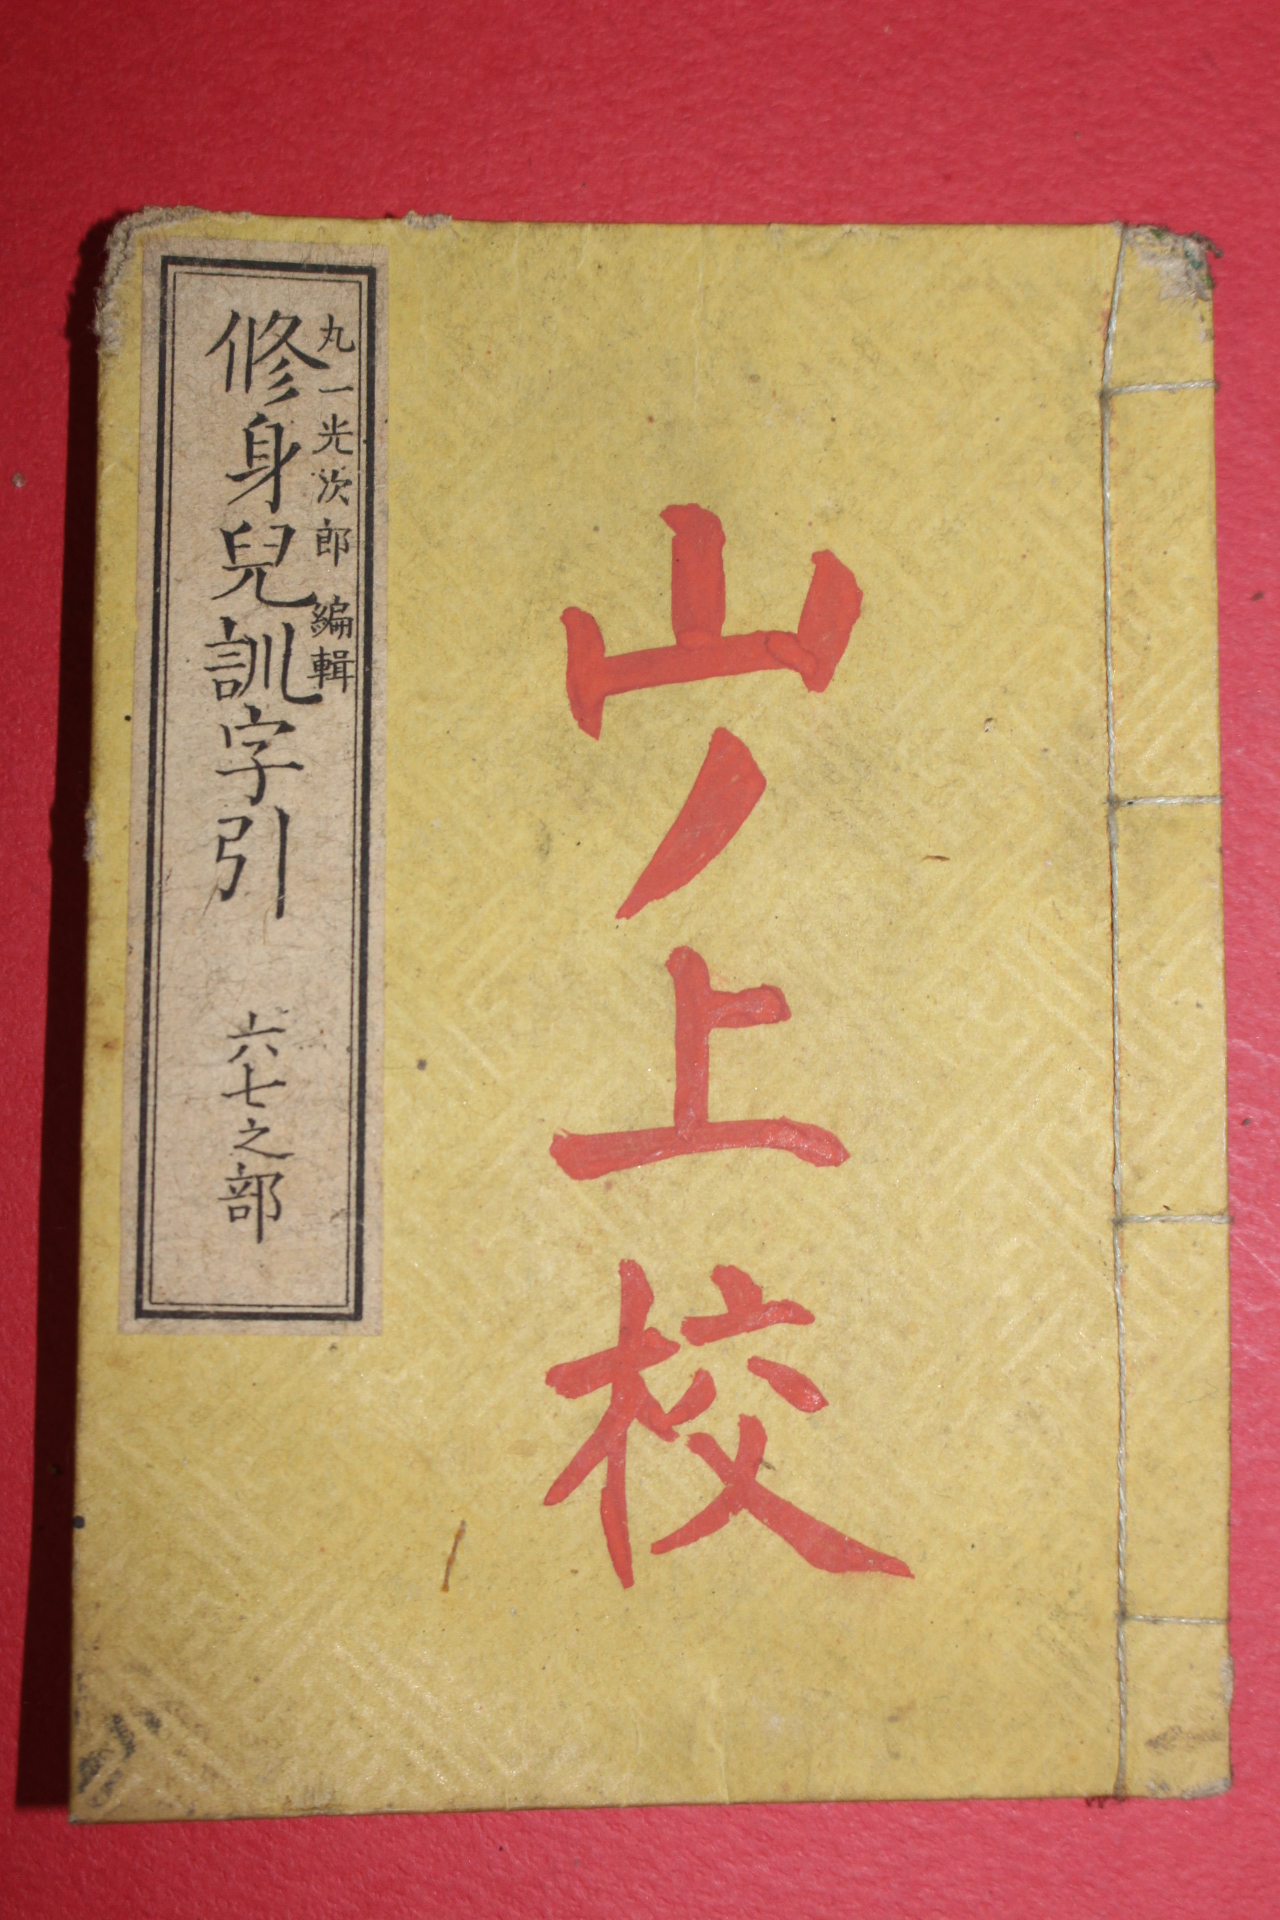 山ノ上校
丸一光次郎 編輯
修身兒訓字引 六七之部